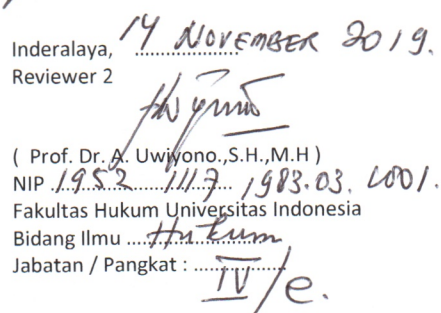 Inderalaya, 14 NOVEMBER 2019.
Reviewer 2
( Prof. Dr. A. Uwiyono.,S.H.,M.H )
NIP .1952 1117 1983.03. 1001.
Fakultas Hukum Universitas Indonesia
Bidang Ilmu ....Hukum
Jabatan / Pangkat : ....IV/e.